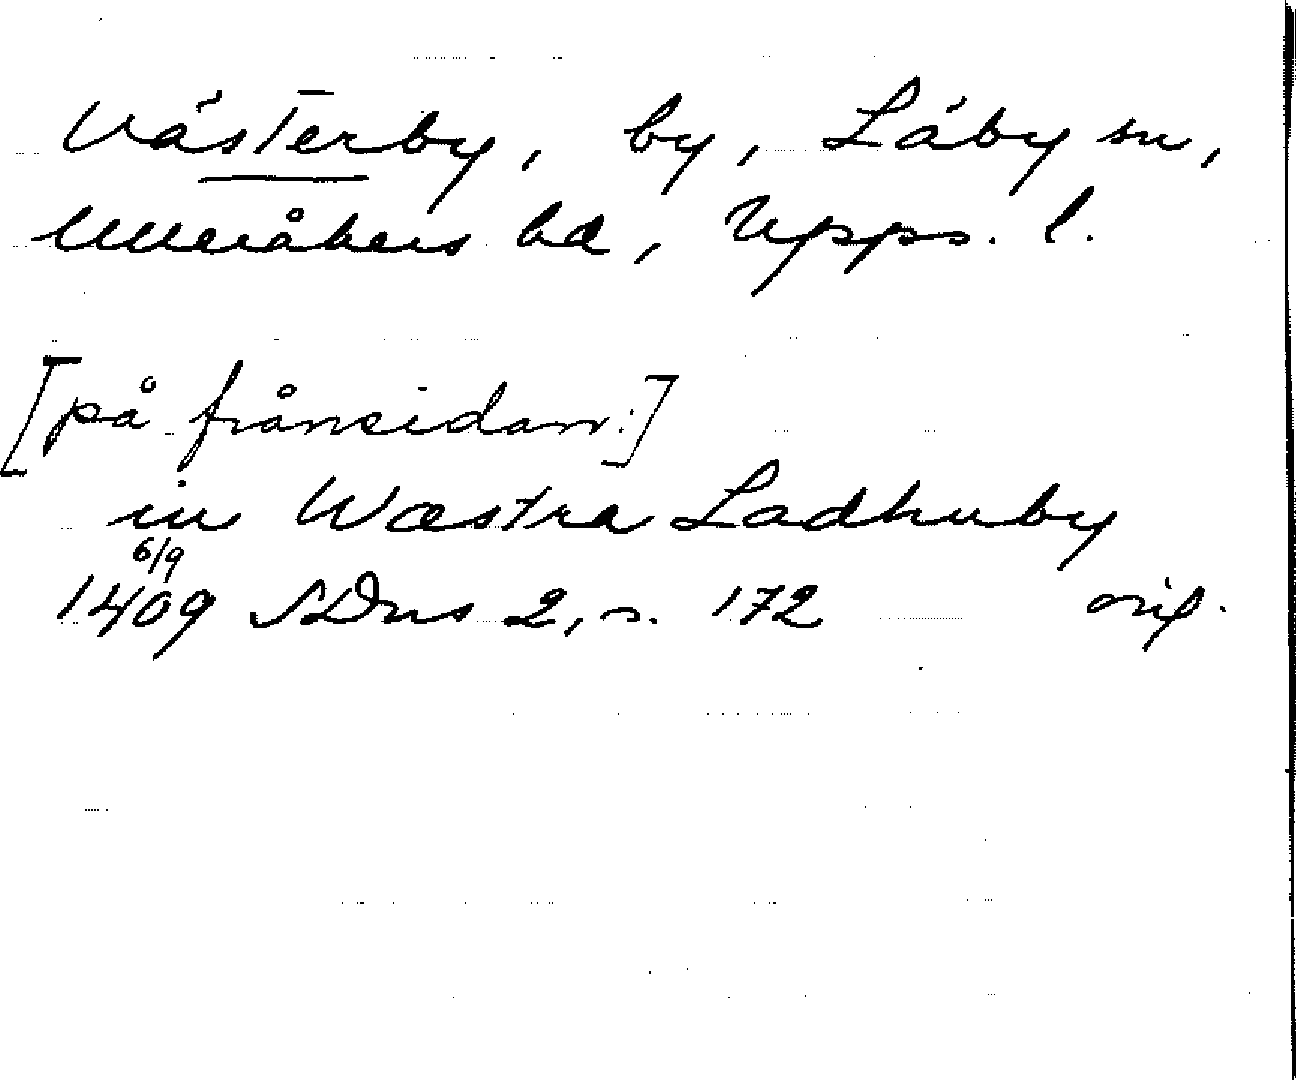 Västerby, by, Läby sn,
Ulleråkers hd, Upps. l.
[på frånsidan:]
in Wæstra Ladhuby
6/9
1409 SDns 2, s. 172 orig.